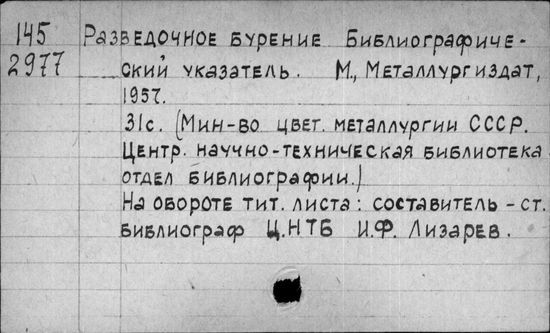 145 Разведочное бурение Библиографиче-
2977 ский указатель. М., Металлургиздат,
1957.
31с. (Мин-во цвет. металлургии СССР.
Центр. научно-техническая библиотека
отдел библиографии.)
На обороте тит. листа: составитель - ст.
библиограф Ц.НТБ И.Ф. Лизарев.